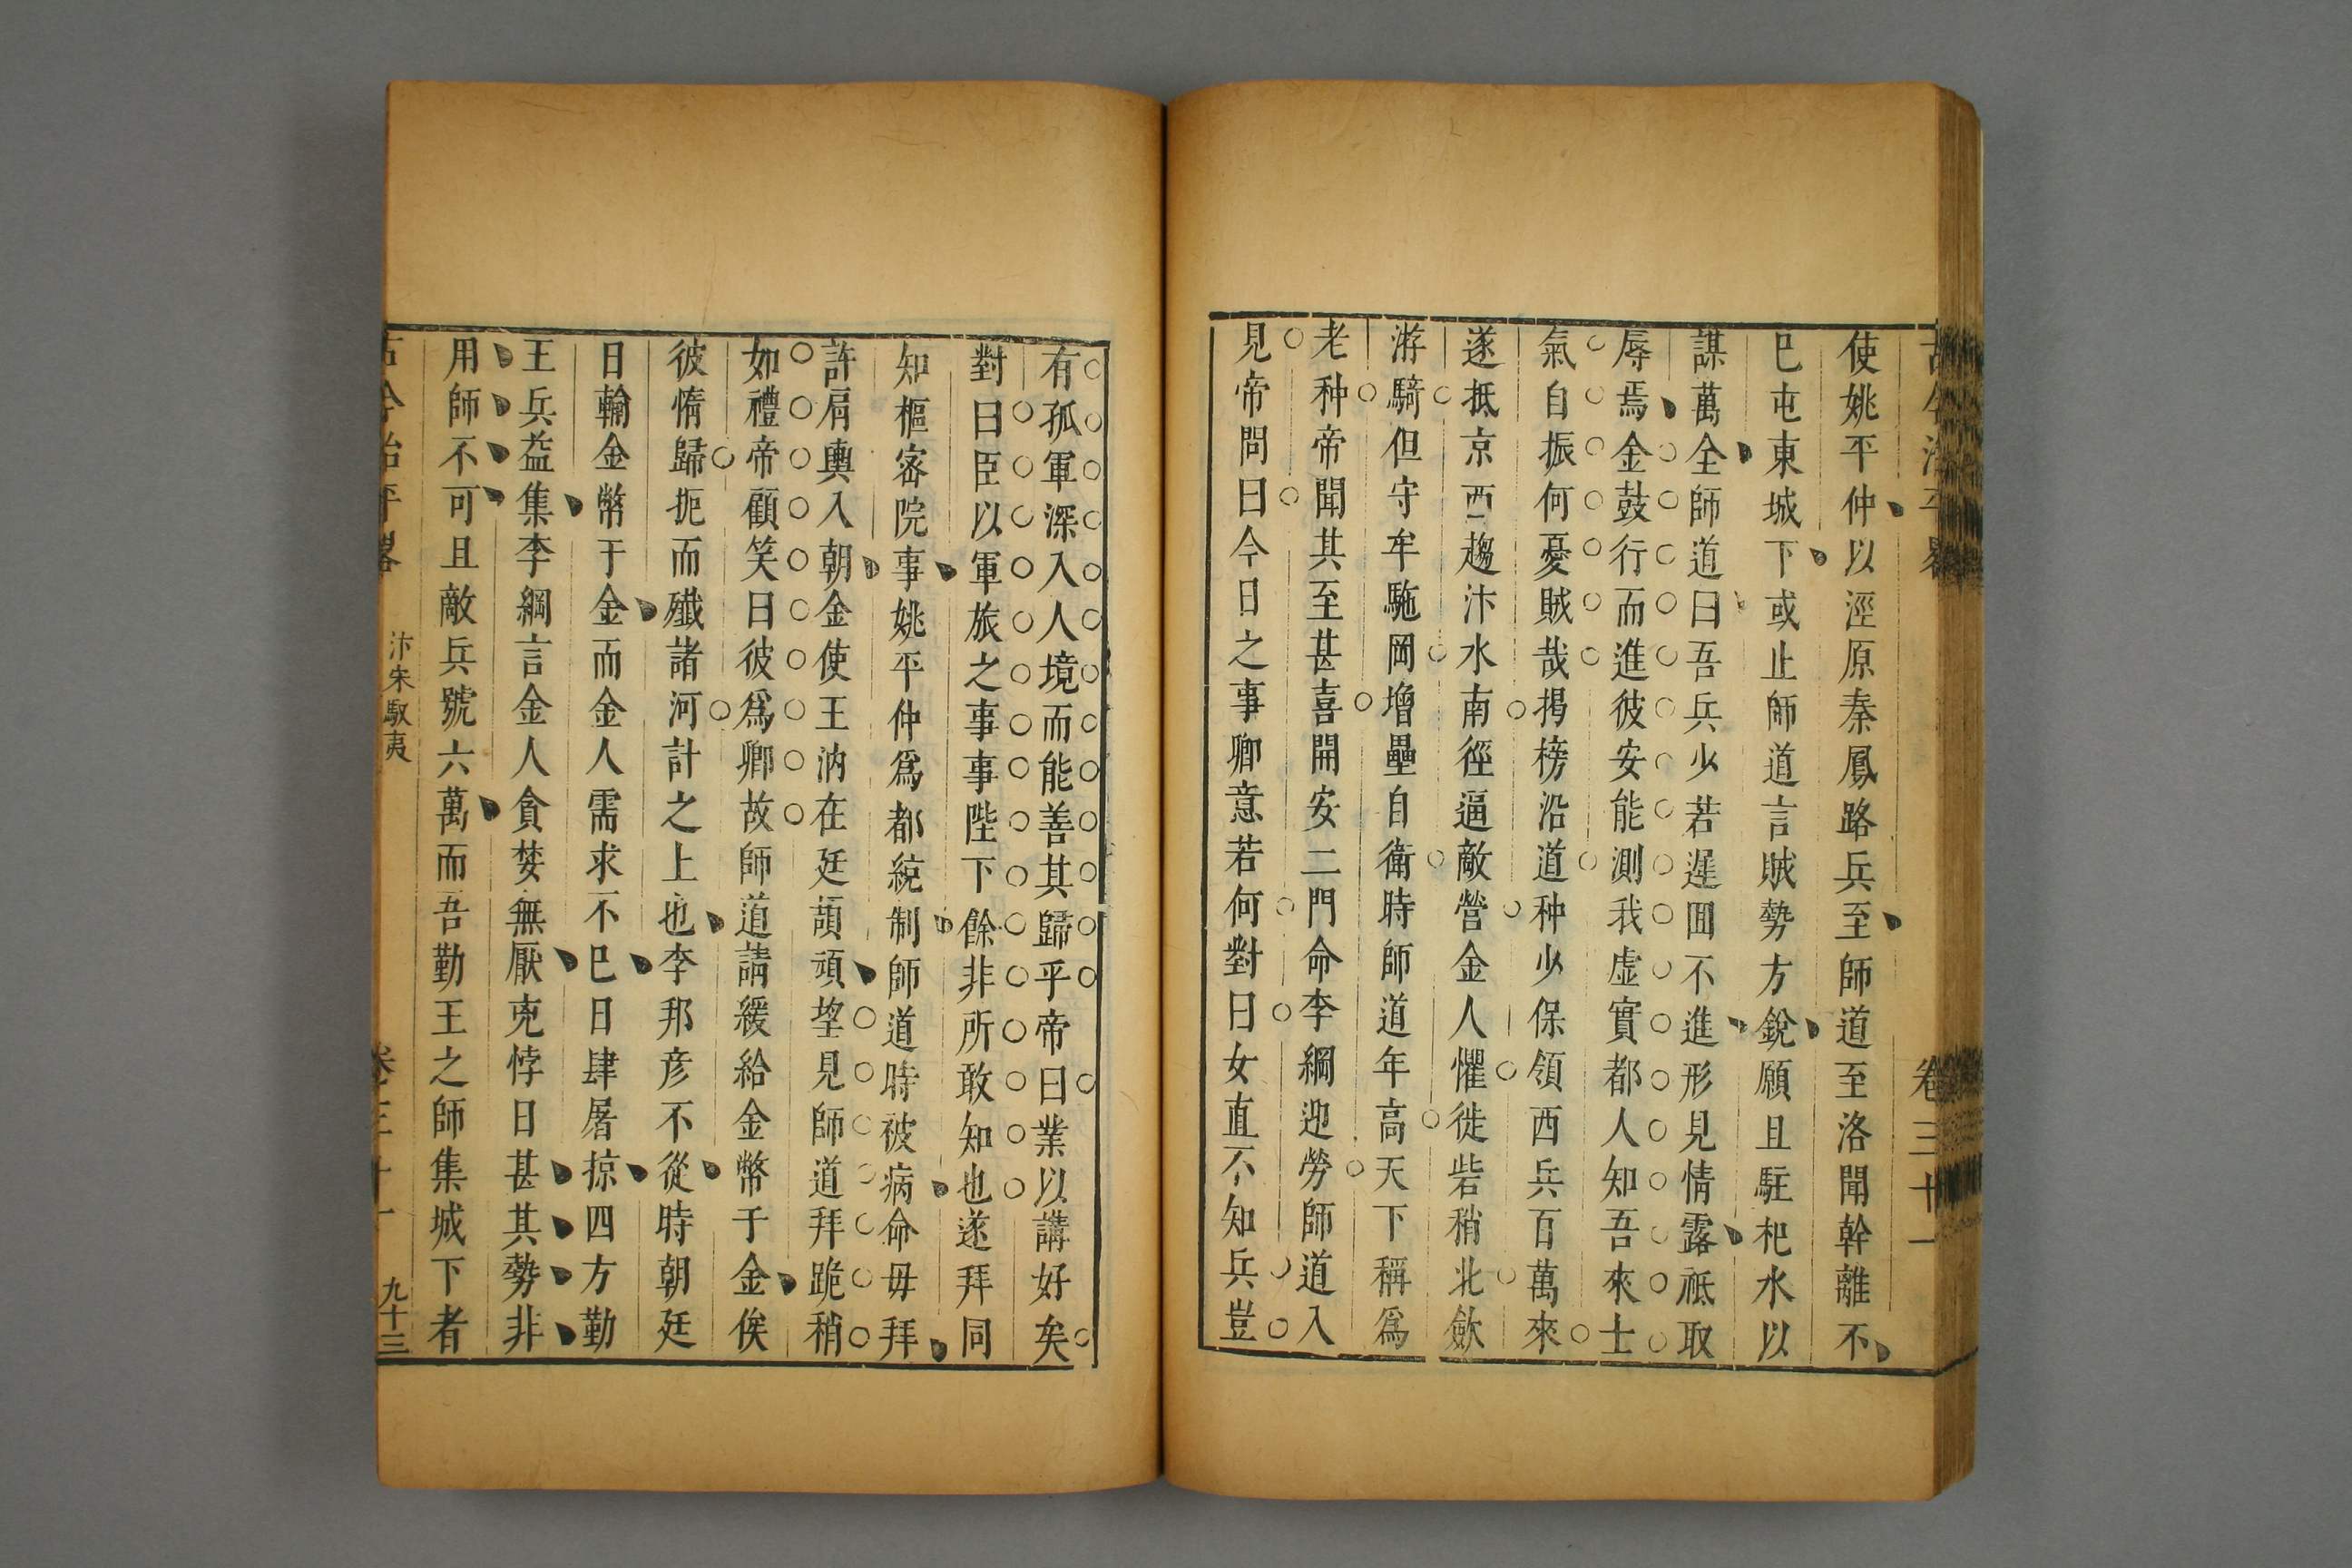 古今治平畧 卷三十一
使姚平仲以涇原秦鳳路兵至師道至洛聞幹離不
巳屯東城下或止師道言賊勢方銳願且駐杞水以
謀萬全師道曰吾兵少若遲囬不進形見情露祗取
辱焉金鼓行而進彼安能測我虛實都人知吾來士
氣自振何憂賊哉揭榜沿道种少保領西兵百萬來
遂抵京西趨汴水南徑逼敵營金人懼徙砦稍北歛
游騎但守牟駞岡增壘自衛時師道年高天下稱爲
老种帝聞其至甚喜開安二門命李綱迎勞師道入
見帝問曰今日之事卿意若何對曰女直不知兵豈
有孤軍深入人境而能善其歸乎帝曰業以講好矣
對曰臣以軍旅之事事陛下餘非所敢知也遂拜同
知樞宻院事姚平仲爲都統制師道時被病命毋拜
許肩輿入朝金使王汭在廷頡頑望見師道拜跪稍
如禮帝顧笑曰彼爲卿故師道請緩給金幣于金俟
彼惰歸扼而殱諸河計之上也李邦彥不從時朝廷
日輸金幣于金而金人需求不巳日肆屠掠四方勤
王兵益集李綱言金人貪婪無厭兇悖日甚其勢非
用師不可且敵兵號六萬而吾勤王之師集城下者
古今治平畧 汴宋馭夷 卷三十一 九十三